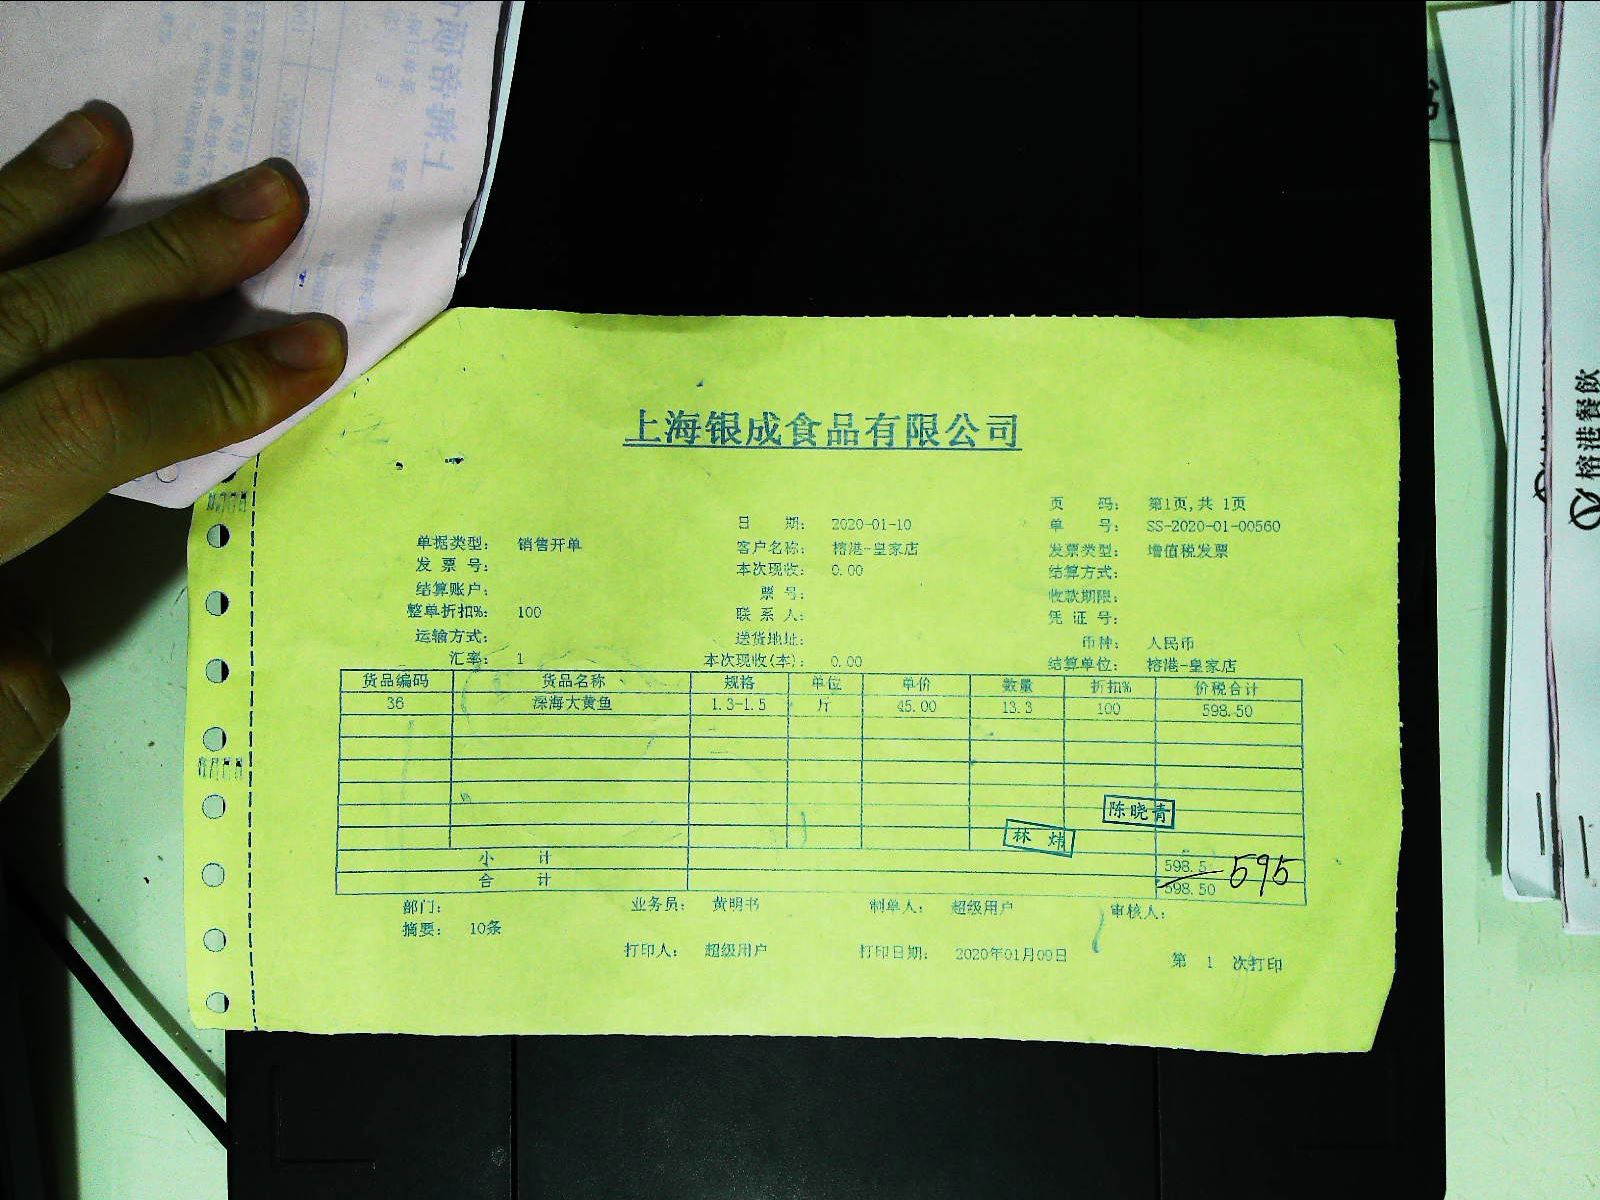 上海银成食品有限公司
页 码: 第1页,共 1页
日 期: 2020-01-10
单 号: SS-2020-01-00560
单据类型: 销售开单
客户名称: 榕港-皇家店
发票类型: 增值税发票
发 票 号:
本次现收: 0.00
结算方式:
结算账户:
票 号:
收款期限:
整单折扣%: 100
联 系 人:
凭 证 号:
运输方式:
送货地址:
币种: 人民币
汇率: 1
本次现收(本): 0.00
结算单位: 榕港-皇家店
货品编码 货品名称 规格 单位 单价 数量 折扣% 价税合计
36 深海大黄鱼 1.3-1.5 斤 45.00 13.3 100 598.50
陈晓青
林 炜
小 计 598.5
595
合 计 598.50
部门: 业务员: 黄明书 制单人: 超级用户 审核人:
摘要: 10条
打印人: 超级用户 打印日期: 2020年01月09日 第 1 次打印
榕港餐飲